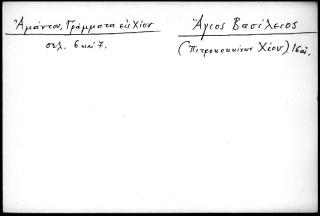 Ἀμάντου, Γράμματα εἰς Χίον
σελ. 6 καὶ 7.
Ἅγιος Βασίλειος
(Πετροκοκκίνων Χίου), 16 αἰ.